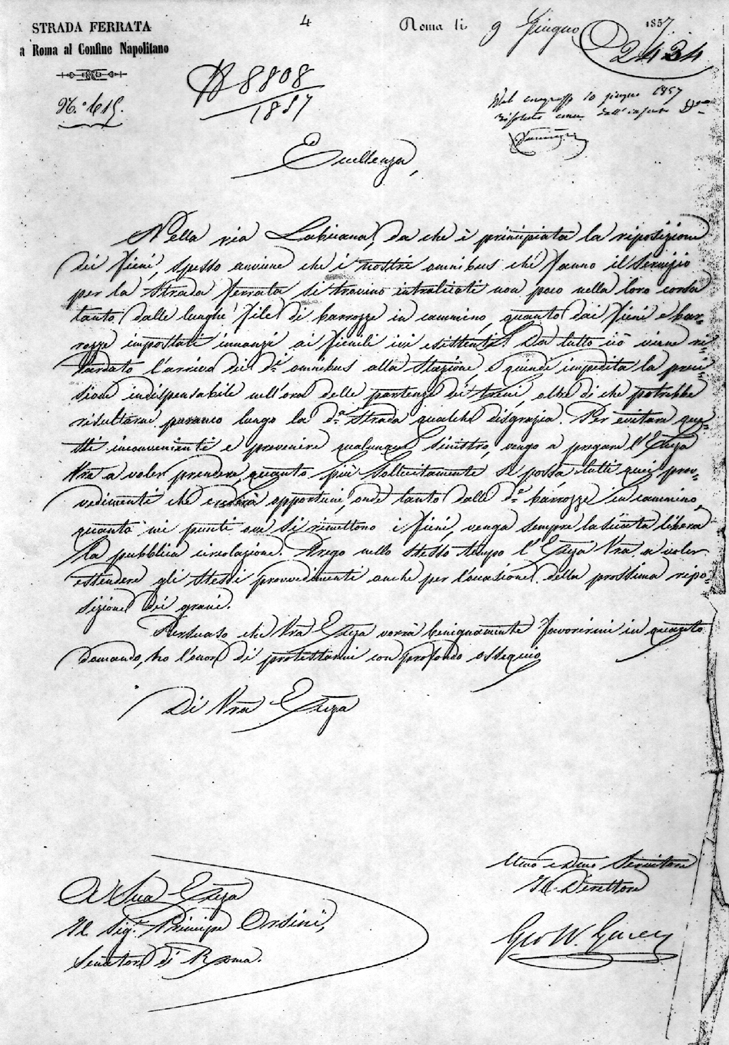 STRADA FERRATA
a Roma al Confine Napolitano
N.° 615.
4
Roma li 9 Giugno 1857
2434
8808
1857
Nel congresso 10 giugno 1857
Eccellenza,
Nella via Labicana, da che è principiata la riposizione
dei fieni, spesso avviene che i nostri omnibus che fanno il servizio
per la Strada ferrata si trovino intralciati non poco nella loro corsa
tanto dalle lunghe file di barrozze in cammino, quanto dai fieni e bar-
rozze impostati innanzi ai fienili ivi esistenti. Da tutto ciò viene ri-
tardato l'arrivo di d.i omnibus alla Stazione e quindi impedita la preci-
sione indispensabile nell'ora delle partenze dei treni, oltre di che potrebbe
risultarne puranco lungo la d.a Strada qualche disgrazia. Per evitare que-
sti inconvenienti e prevenire qualunque sinistro, vengo a pregare l'Ecc̃za
Vr̃a a voler prendere, quanto più sollecitamente si possa tutti quei prov-
vedimenti che crederà opportuni, onde tanto dalle d.e barrozze in cammino,
quanto nei punti ove si rimettono i fieni, venga sempre lasciata libera
la pubblica circolazione. Prego nello stesso tempo l'Ecc̃za Vr̃a a voler
estendere gli stessi provvedimenti anche per l'occasione della prossima ripo-
sizione dei grani.
Persuaso che Vr̃a Ecc̃za vorrà benignamente favorirmi in quanto
domando, ho l'onor di protestarmi con profondo ossequio
Di Vr̃a Ecc̃za
A Sua Ecc̃za
Il Sig.r Principe Orsini,
Senatore di Roma.
Umo e Dmo Servitore
Il Direttore
Geo W.